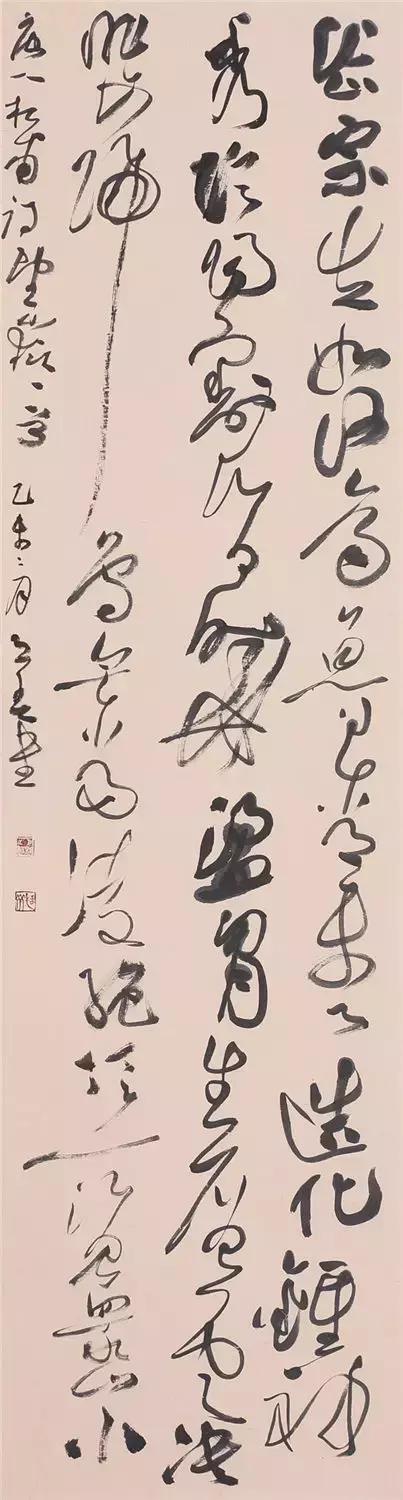 岱宗夫如何齊魯青未了造化鍾神
秀陰陽割昏曉盪胸生層雲決
眥入歸鳥會當凌絕頂一覽眾山小
唐人杜甫詩望嶽一首 乙未二月 書